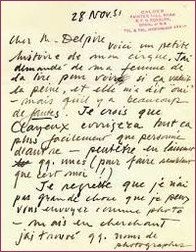 28 Nov. 51
CALDER
PAINTER HILL ROAD
R F D ROXBURY
CONN.
Cher M. Delpire
voici un petite
histoire de mon cirque. J'ai
demandé de ma femme de
la lire pour voir si ça valait
la peine, et elle m'a dit oui
- mais qu'il y a beaucoup
de fautes. Je crois que
Clayeux corrigera tout ça
plus facilement que personne
d'autre — peutêtre en laissant
qq. unes (pour faire sembler
que c'est moi!)
Je regrette que je n'ai
pas grande chose que je peux
vous envoyer comme photo
— mais en cherchant
j'ai trouvé qq. noms de
photographes